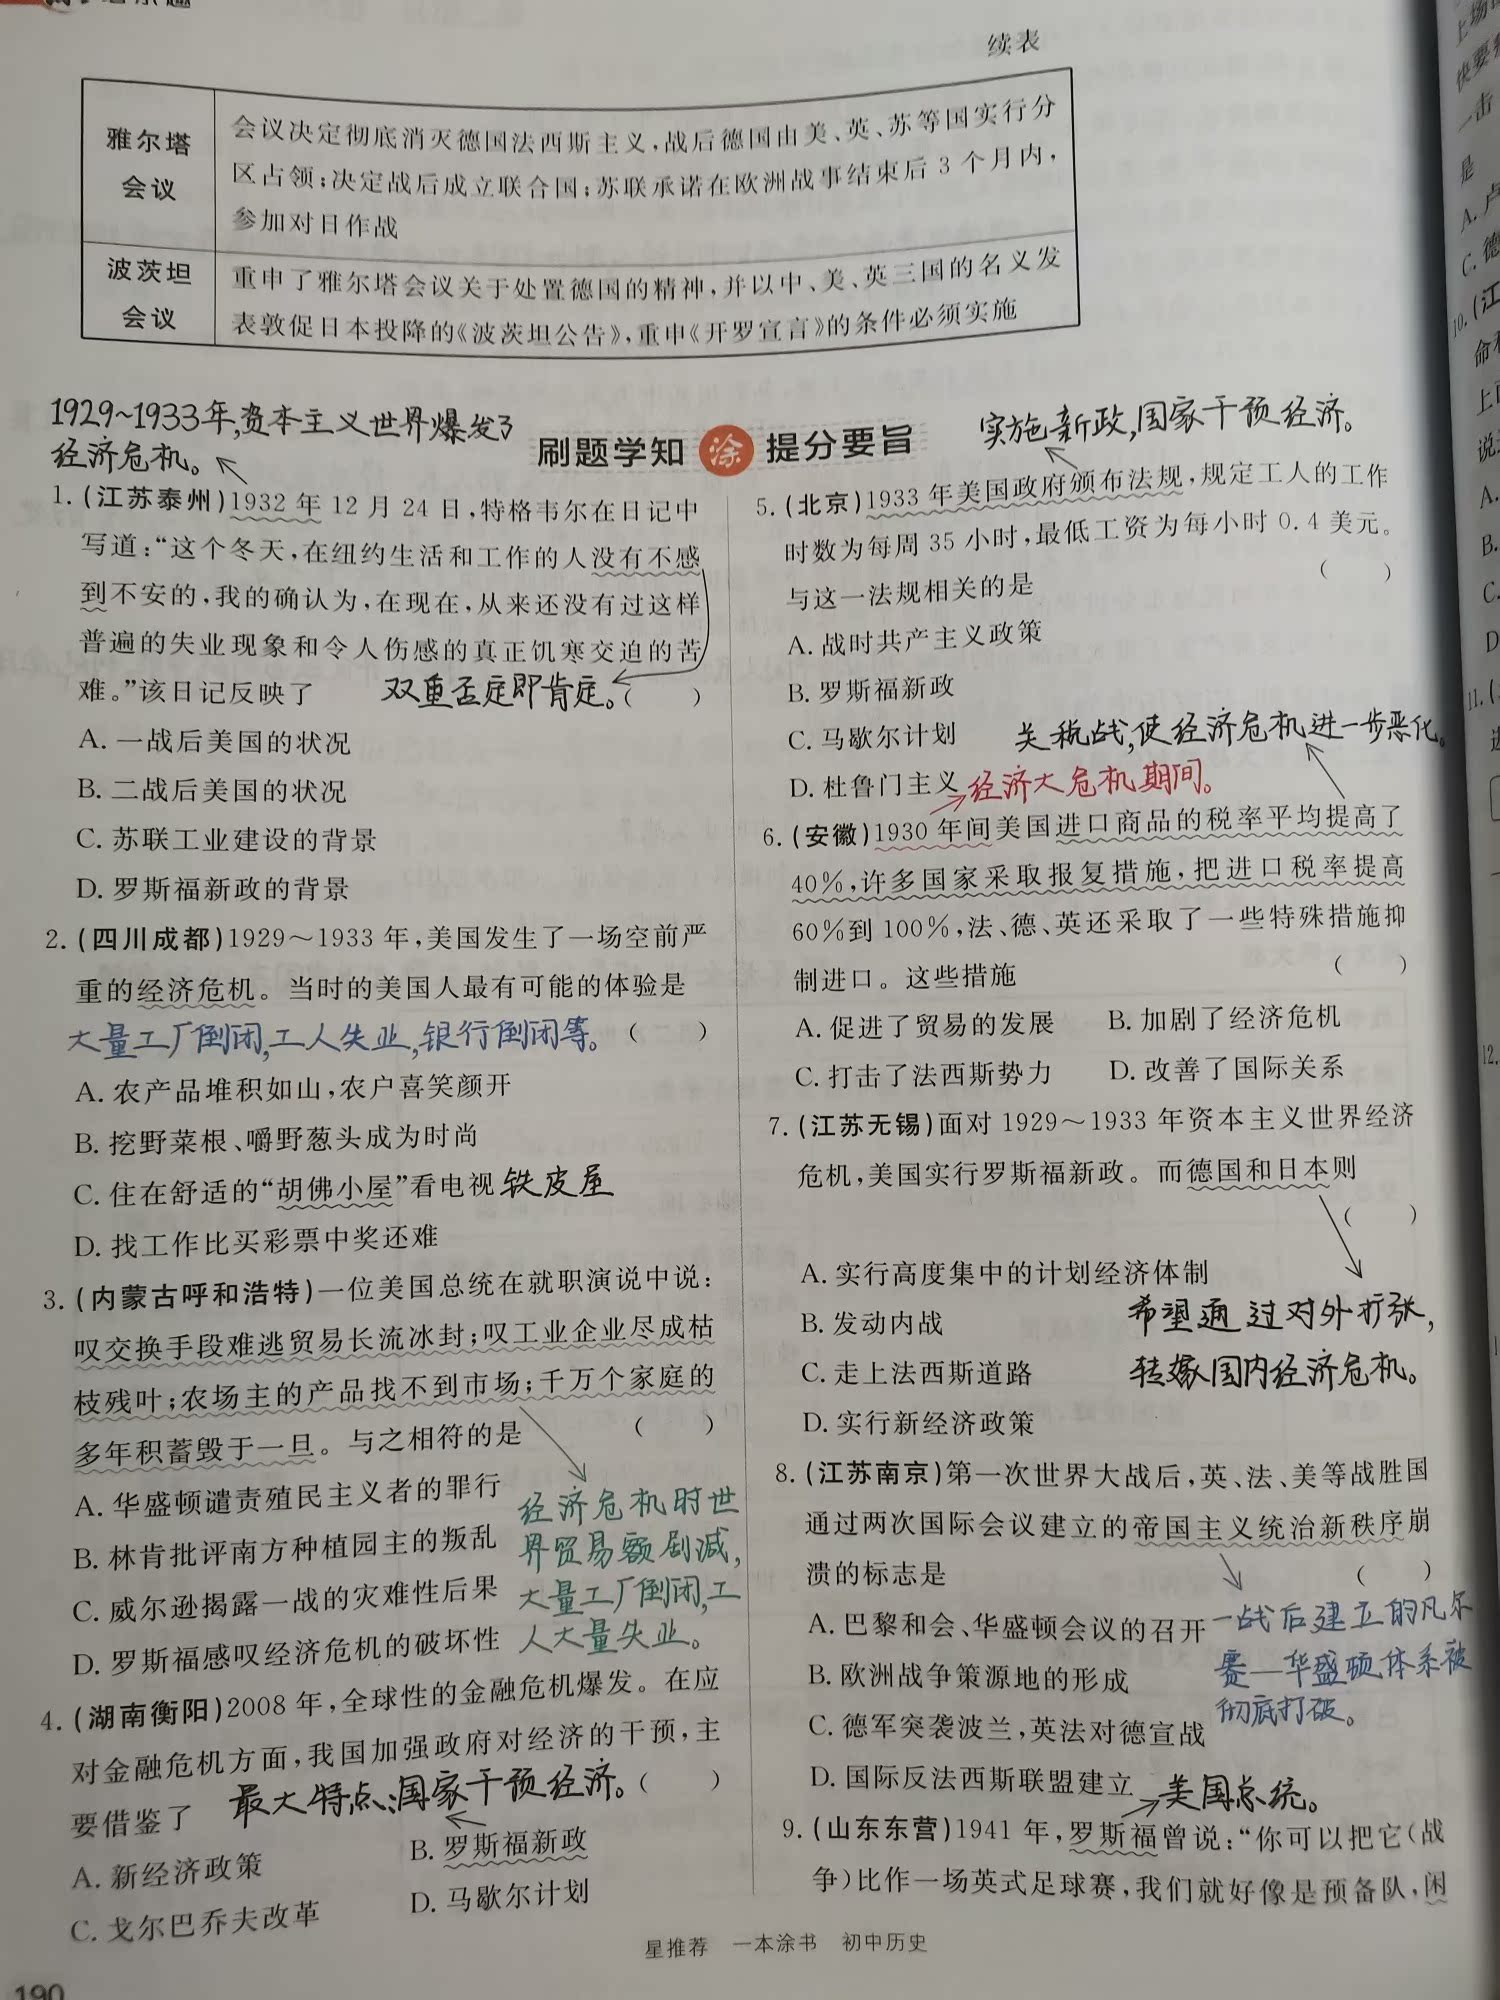 续表
雅尔塔
会议
会议决定彻底消灭德国法西斯主义,战后德国由美、英、苏等国实行分
区占领;决定战后成立联合国;苏联承诺在欧洲战事结束后3个月内,
参加对日作战
波茨坦
会议
重申了雅尔塔会议关于处置德国的精神,并以中、美、英三国的名义发
表敦促日本投降的《波茨坦公告》,重申《开罗宣言》的条件必须实施
刷题学知 涂 提分要旨
1929~1933年,资本主义世界爆发了
经济危机。
1.(江苏泰州)1932年12月24日,特格韦尔在日记中
写道:“这个冬天,在纽约生活和工作的人没有不感
到不安的,我的确认为,在现在,从来还没有过这样
普遍的失业现象和令人伤感的真正饥寒交迫的苦
难。”该日记反映了 双重否定即肯定。( )
A.一战后美国的状况
B.二战后美国的状况
C.苏联工业建设的背景
D.罗斯福新政的背景
2.(四川成都)1929～1933年,美国发生了一场空前严
重的经济危机。当时的美国人最有可能的体验是
大量工厂倒闭,工人失业,银行倒闭等。( )
A.农产品堆积如山,农户喜笑颜开
B.挖野菜根、嚼野葱头成为时尚
C.住在舒适的“胡佛小屋”看电视 铁皮屋
D.找工作比买彩票中奖还难
3.(内蒙古呼和浩特)一位美国总统在就职演说中说:
叹交换手段难逃贸易长流冰封;叹工业企业尽成枯
枝残叶;农场主的产品找不到市场;千万个家庭的
多年积蓄毁于一旦。与之相符的是 ( )
A.华盛顿谴责殖民主义者的罪行
B.林肯批评南方种植园主的叛乱
C.威尔逊揭露一战的灾难性后果
D.罗斯福感叹经济危机的破坏性
经济危机时世
界贸易额剧减,
大量工厂倒闭,工
人大量失业。
4.(湖南衡阳)2008年,全球性的金融危机爆发。在应
对金融危机方面,我国加强政府对经济的干预,主
要借鉴了 最大特点:国家干预经济。( )
A.新经济政策
B.罗斯福新政
C.戈尔巴乔夫改革
D.马歇尔计划
实施新政,国家干预经济。
5.(北京)1933年美国政府颁布法规,规定工人的工作
时数为每周35小时,最低工资为每小时0.4美元。
与这一法规相关的是 ( )
A.战时共产主义政策
B.罗斯福新政
C.马歇尔计划
D.杜鲁门主义
关税战,使经济危机进一步恶化。
经济大危机期间。
6.(安徽)1930年间美国进口商品的税率平均提高了
40%,许多国家采取报复措施,把进口税率提高
60%到100%,法、德、英还采取了一些特殊措施抑
制进口。这些措施 ( )
A.促进了贸易的发展 B.加剧了经济危机
C.打击了法西斯势力 D.改善了国际关系
7.(江苏无锡)面对1929～1933年资本主义世界经济
危机,美国实行罗斯福新政。而德国和日本则
( )
A.实行高度集中的计划经济体制
B.发动内战
C.走上法西斯道路
D.实行新经济政策
希望通过对外扩张,
转嫁国内经济危机。
8.(江苏南京)第一次世界大战后,英、法、美等战胜国
通过两次国际会议建立的帝国主义统治新秩序崩
溃的标志是 ( )
A.巴黎和会、华盛顿会议的召开
B.欧洲战争策源地的形成
C.德军突袭波兰,英法对德宣战
D.国际反法西斯联盟建立
一战后建立的凡尔
赛—华盛顿体系被
彻底打破。
美国总统。
9.(山东东营)1941年,罗斯福曾说:“你可以把它(战
争)比作一场英式足球赛,我们就好像是预备队,闲
星推荐 一本涂书 初中历史
190
上场
快要
一击
是
A.卢
C.德
10.(江
命
上
说
A.
B.
C.
D
11.(
12.